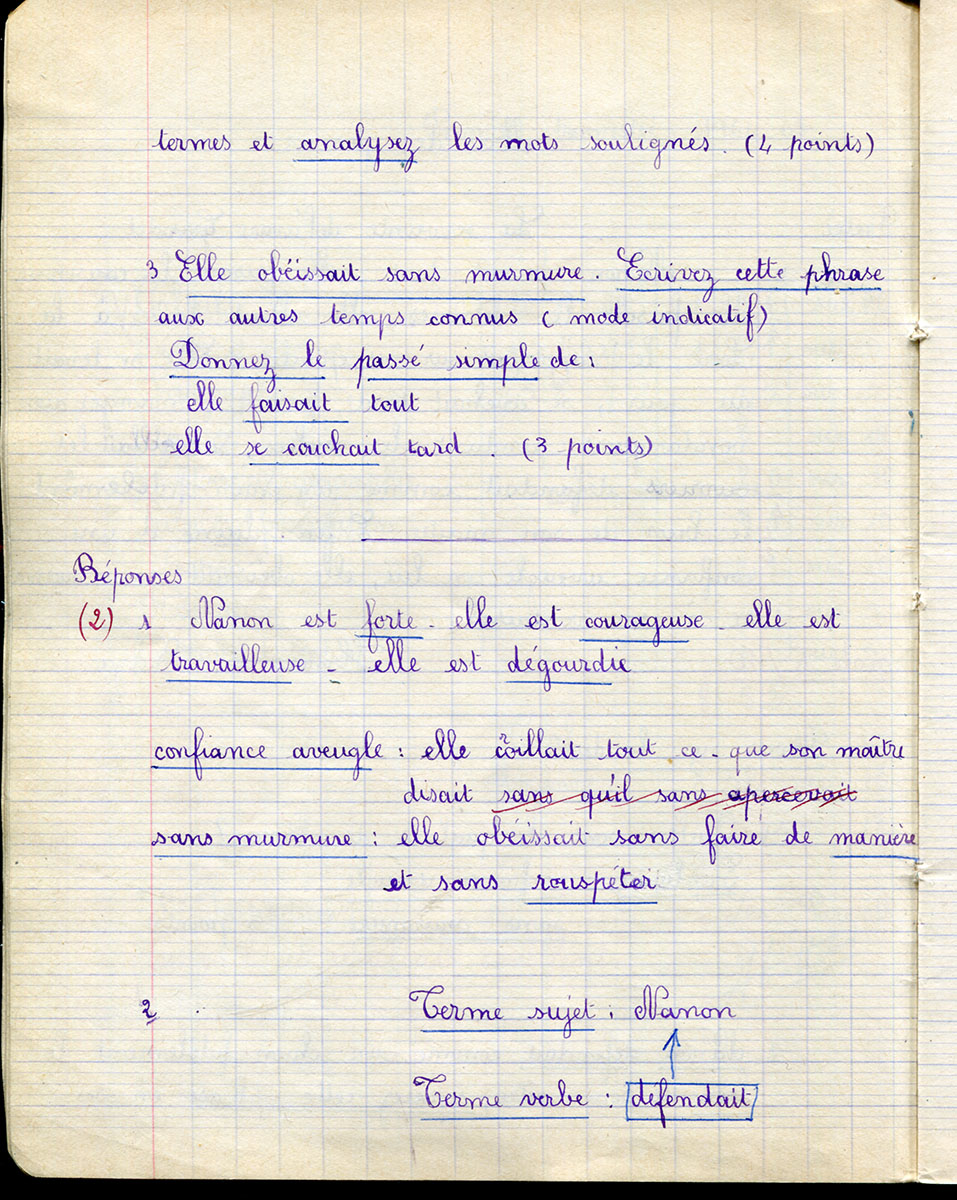 termes et analysez les mots soulignés. (4 points)
3 Elle obéissait sans murmure. Ecrivez cette phrase
aux autres temps connus (mode indicatif)
Donnez le passé simple de :
elle faisait tout
elle se couchait tard. (3 points)
Réponses
(2) 1 Nanon est forte - elle est courageuse - elle est
travailleuse - elle est dégourdie
confiance aveugle : elle tout ce - que son maître
disait sans qu'il sans apercevait
sans murmure : elle obéissait sans faire de manière
et sans rouspéter
2 Terme sujet : Nanon
Terme verbe : defendait